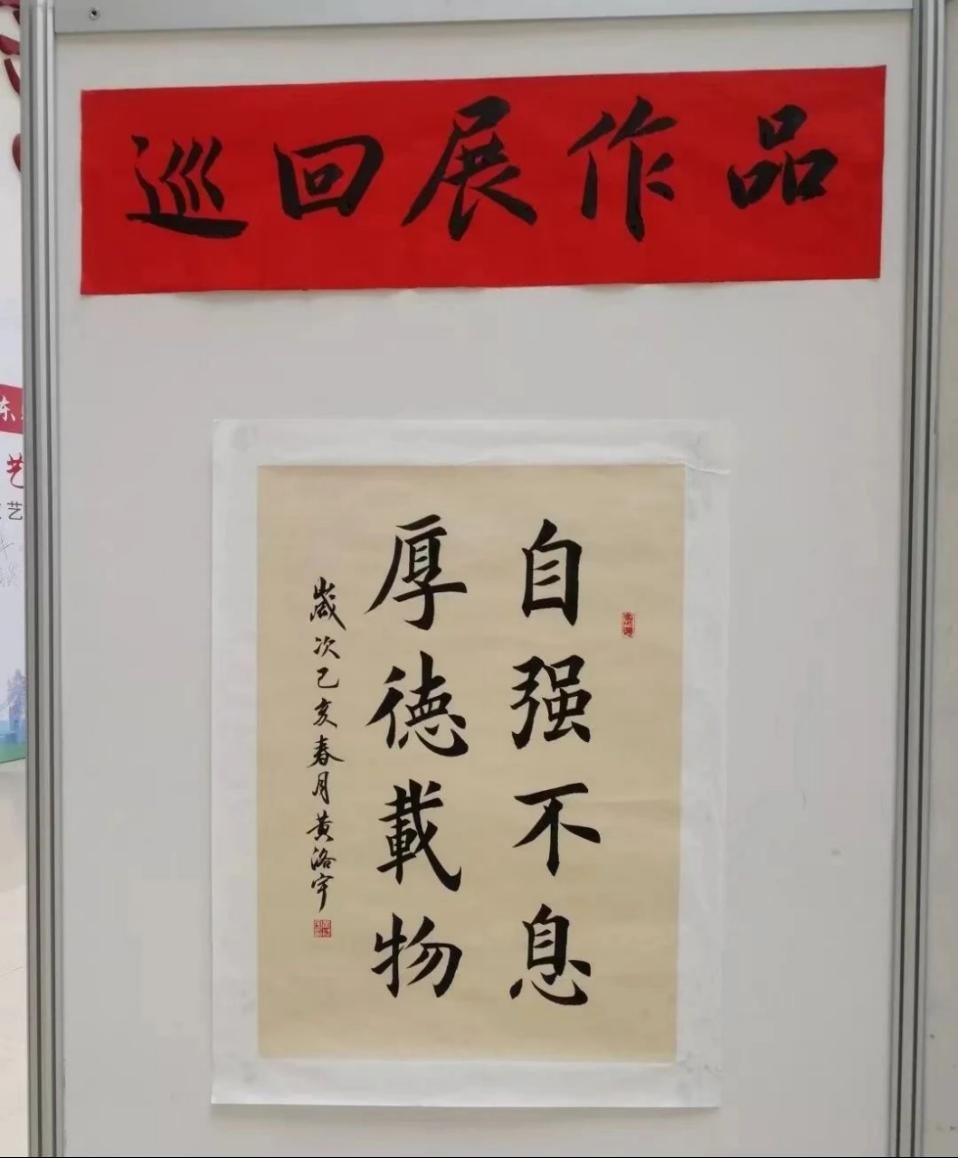 巡回展作品
自强不息
厚德載物
歲次己亥春月黄洛宇
东
艺
艺